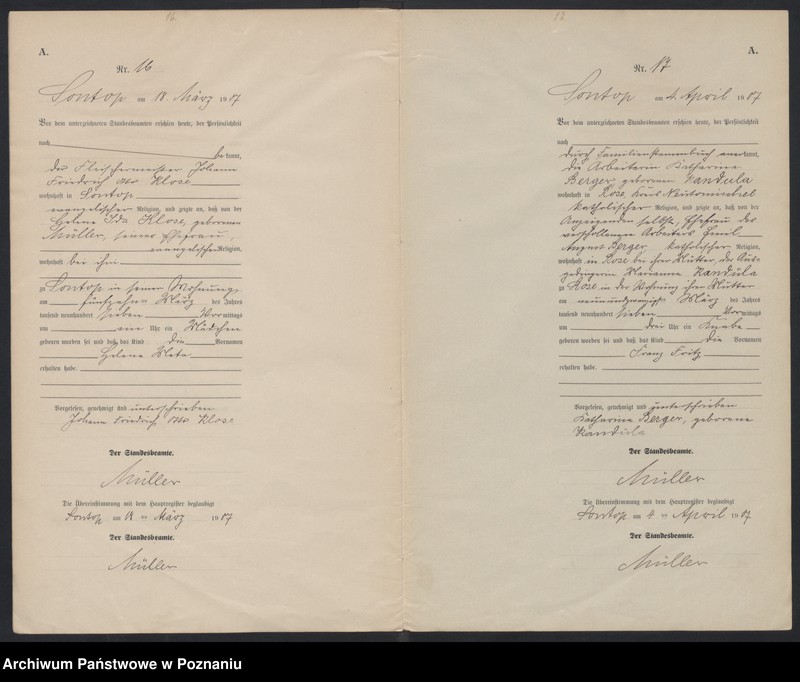 16.
A.
Nr. 16
Sontop am 18. März 1907
Vor dem unterzeichneten Standesbeamten erschien heute, der Persönlichkeit
nach
bekannt,
der Fleischermeister Johann
Friedrich Otto Klose
wohnhaft in Sontop
evangelischer Religion, und zeigte an, daß von der
Helene Ida Klose, geborenen
Müller, seiner Ehefrau,
evangelischer Religion,
wohnhaft bei ihm
zu Sontop in seiner Wohnung,
am fünfzehnten März des Jahres
tausend neunhundert sieben Vormittags
um ein Uhr ein Mädchen
geboren worden sei und daß das Kind die Vornamen
Helene Meta
erhalten habe.
Vorgelesen, genehmigt und unterschrieben
Johann Friedrich Otto Klose
Der Standesbeamte.
Müller
Die Übereinstimmung mit dem Hauptregister beglaubigt
Sontop am 18. März 1907
Der Standesbeamte.
Müller
A.
Nr. 17
Sontop am 4. April 1907
Vor dem unterzeichneten Standesbeamten erschien heute, der Persönlichkeit
nach
durch Familienstammbuch anerkannt,
die Arbeiterin Katharina
Berger geborenen Kandula
wohnhaft in Rose, Kreis Neutomischel
katholischer Religion, und zeigte an, daß von der
Anzeigenden selbst, Ehefrau des
verschollenen Arbeiters Emil
August Berger, katholischer Religion,
wohnhaft in Rose bei ihrer Mutter, der Aus-
gedingerin Marianna Kandula
zu Rose in der Wohnung ihrer Mutter
am neunundzwanzigsten März des Jahres
tausend neunhundert sieben Vormittags
um drei Uhr ein Knabe
geboren worden sei und daß das Kind die Vornamen
Franz Fritz
erhalten habe.
Vorgelesen, genehmigt und unterschrieben
Katharina Berger, geborene
Kandula
Der Standesbeamte.
Müller
Die Übereinstimmung mit dem Hauptregister beglaubigt
Sontop am 4. April 1907
Der Standesbeamte.
Müller
Archiwum Państwowe w Poznaniu